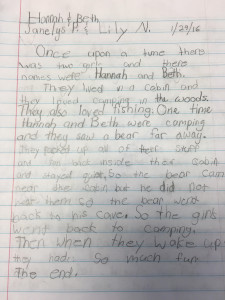 Hannah & Beth
Janelys P. & Lily N. 1/29/16
Once upon a time there
was two girls and there
names were Hannah and Beth.
They lived in a cabin and
they loved camping in the woods.
They also loved fishing. One time
Hannah and Beth were camping
and they saw a bear far away.
They picked up all of their stuff
and ran back inside their cabin
and stayed the bear came
near their cabin but he did not
them so the bear went
back to his cave. So the girls
went back to camping.
Then when they wake up
they had so much fun
The end.